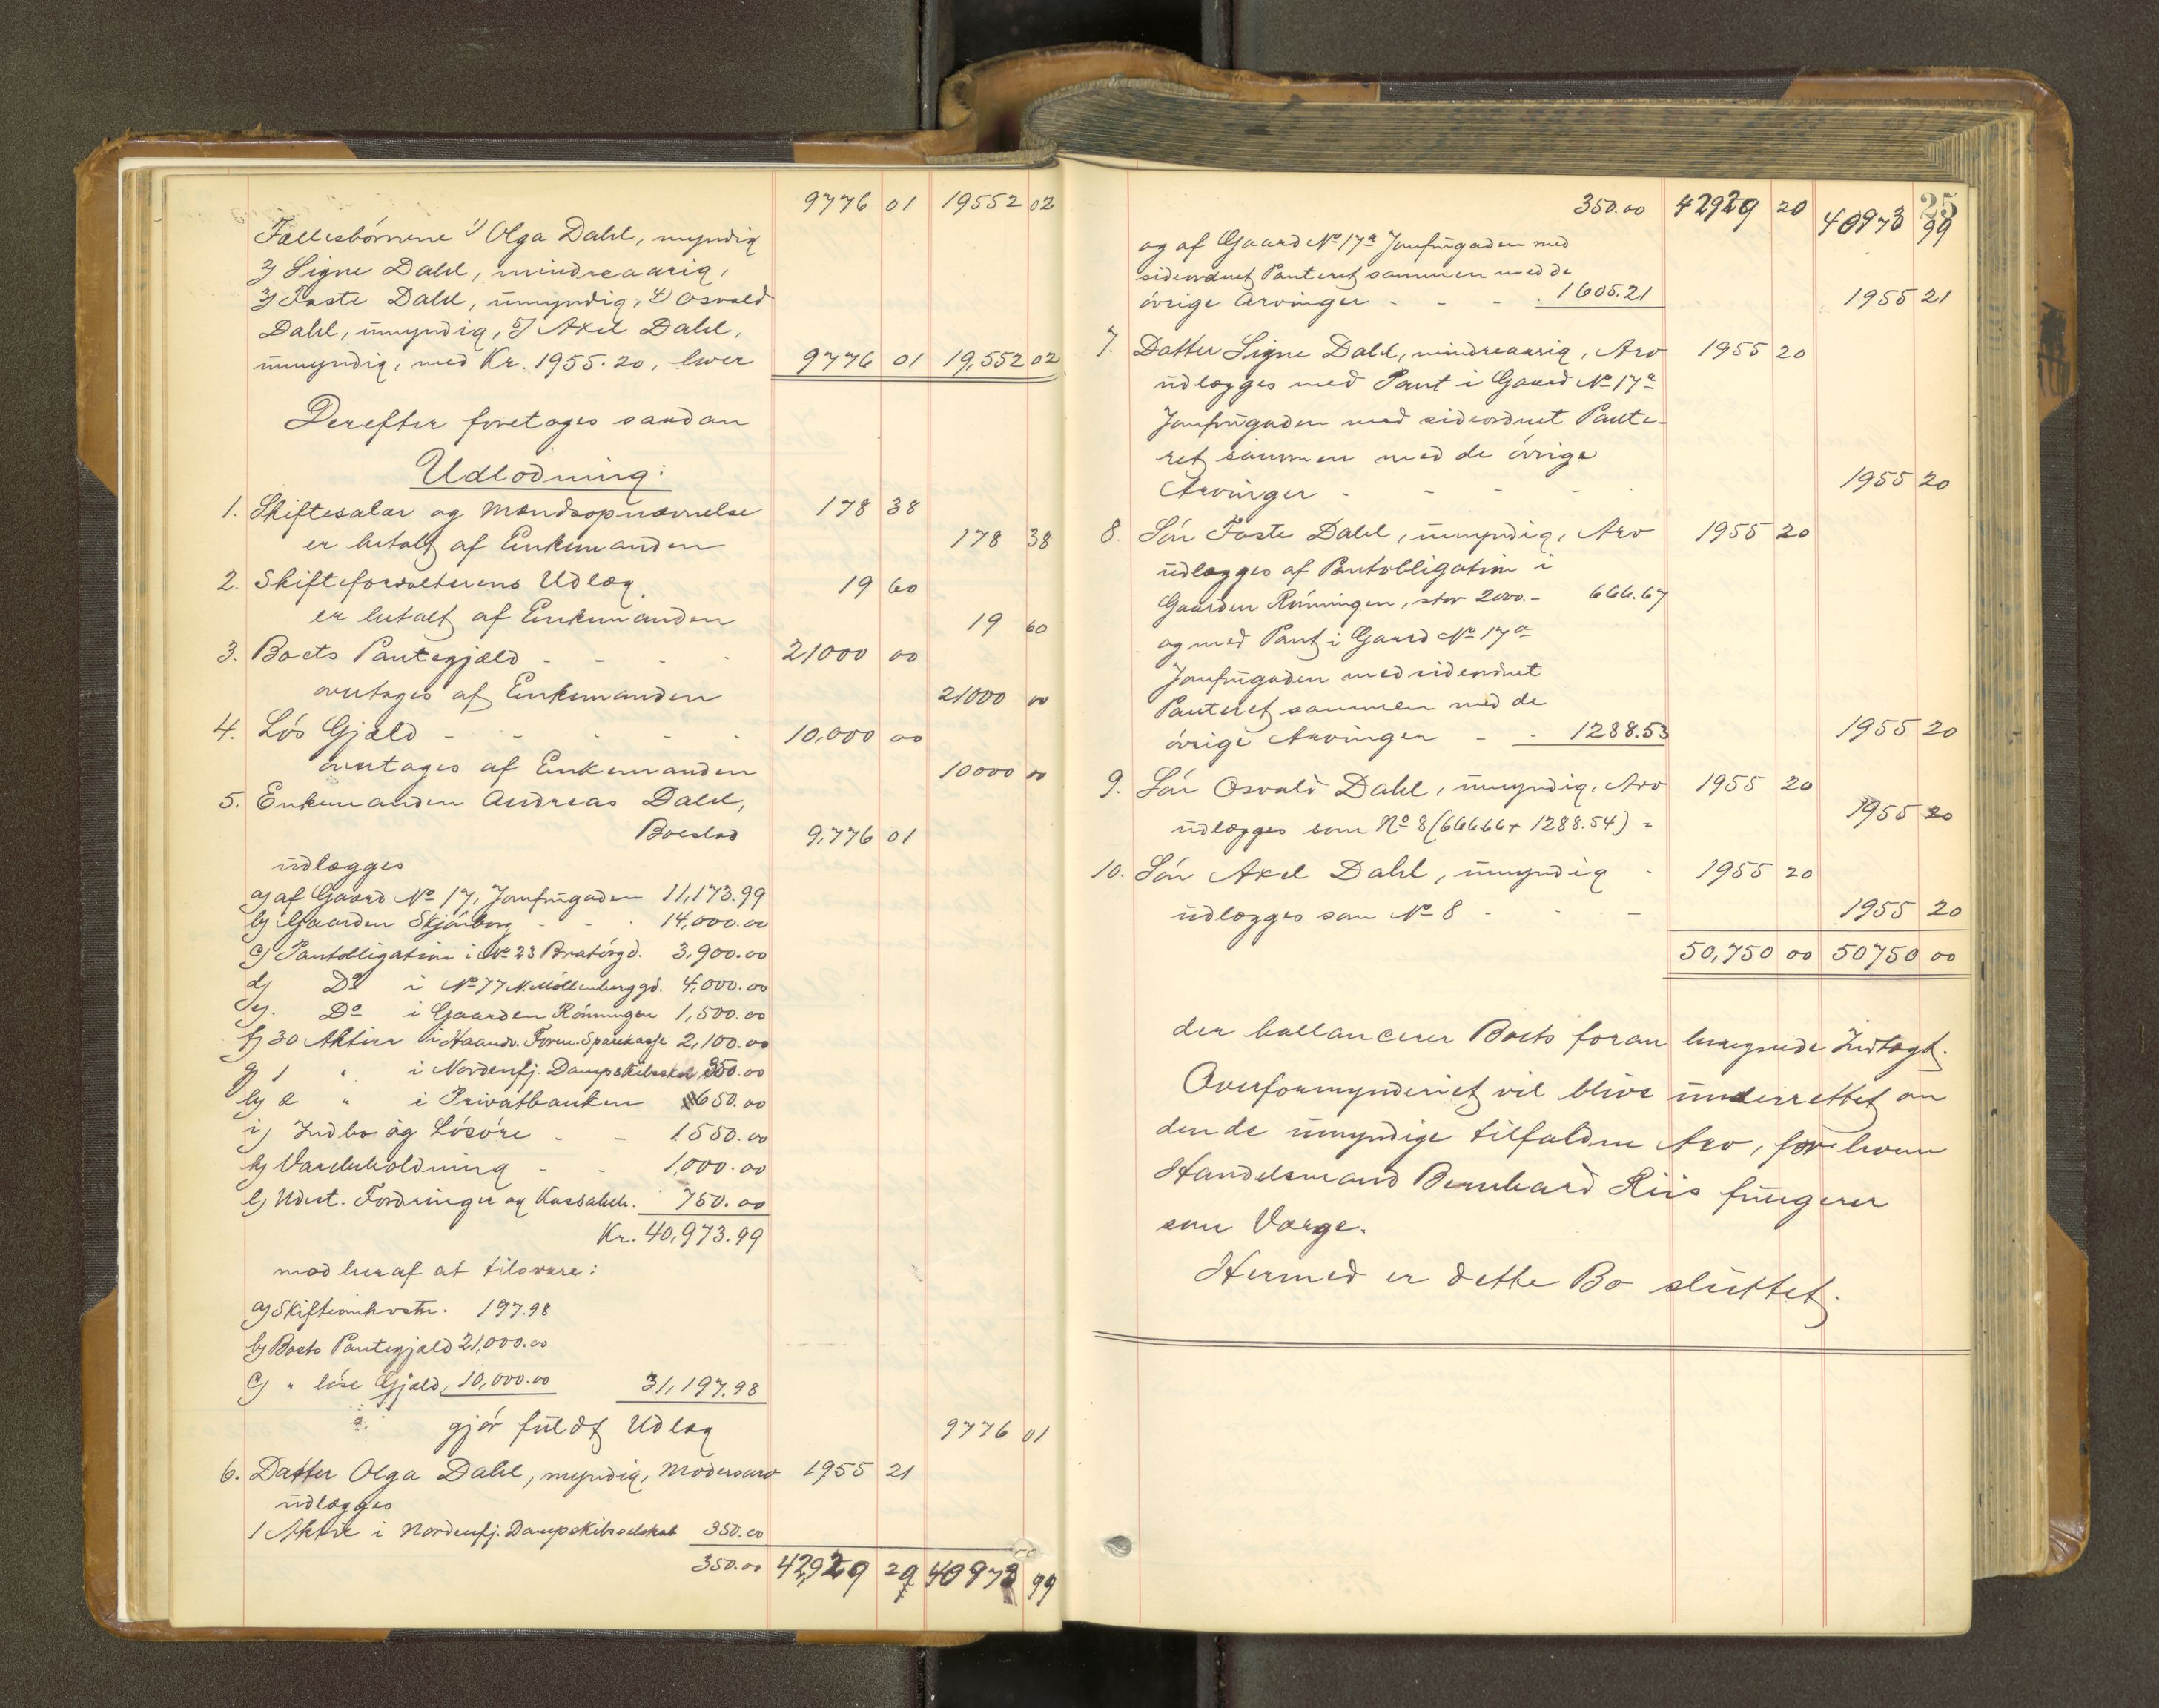 9776 01 19552 02
Fællesbørnene 1) Olga Dahl, myndig
2) Signe Dahl, mindreaarig,
3) Faste Dahl, umyndig, 4) Osvald
Dahl, umyndig, 5) Axel Dahl,
umyndig, med Kr. 1955.20, hver 9776 01 19,552 02
Derefter foretages saadan
Udlodning:
1. Skiftesalær og Mændsopnævnelse 178 38
er betalt af Enkemanden 178 38
2. Skifteforvalterens Udlæg 19 60
er betalt af Enkemanden 19 60
3. Boets Pantegjæld - - - - 21000 00
overtages af Enkemanden 21000 00
4. Løs Gjæld - - - - - 10,000 00
overtages af Enkemanden 10000 00
5. Enkemanden Andreas Dahl,
Boeslod 9,776 01
udlægges
a) af Gaard No 17, Jomfrugaden 11,173.99
b) Gaarden Skjønberg - - 14,000.00
c) Pantobligation i No 23 Bratørgd. 3,900.00
d) Do i No 77 N. Møllenberggd. 4,000.00
e) Do i Gaarden Rønningen 1,500.00
f) 30 Aktier i Haandv. Foren. Sparekasse 2,100.00
g) 1 " i Nordenfj. Dampskibsselsk. 350.00
h) 2 " i Privatbanken 650.00
i) Indbo og Løsøre - - 1550.00
k) Varebeholdning - - 1,000.00
l) Udest. Fordringer og Kassabeh. 750.00
Kr. 40,973.99
mod heraf at tilsvare:
a) Skifteomkostn. 197.98
b) Boets Pantegjæld 21,000.00
c) " løse Gjæld, 10,000.00 31,197.98
gjør fuldt Udlæg 9776 01
6. Datter Olga Dahl, myndig, Modersarv 1955 21
udlægges
1 Aktie i Nordenfj. Dampskibsselskab 350.00
350.00 42,929 20 40973 99
25
350.00 42929 20 40973 99
og af Gaard No 17a Jomfrugaden med
sideordnet Panteret sammen med de
øvrige Arvinger - - - 1605.21 1955 21
7. Datter Signe Dahl, mindreaarig, Arv 1955 20
udlægges med Pant i Gaard No 17a
Jomfrugaden med sideordnet Pante-
ret sammen med de øvrige
Arvinger - - - - 1955 20
8. Søn Faste Dahl, umyndig, Arv 1955 20
udlægges af Pantobligation i
Gaarden Rønningen, stor 2000.- 666.67
og med Pant i Gaard No 17a
Jomfrugaden med sideordnet
Panteret sammen med de
øvrige Arvinger - - 1288.53 1955 20
9. Søn Osvald Dahl, umyndig, Arv 1955 20
udlægges som No 8 (666.66 + 1288.54) = 1955 20
10. Søn Axel Dahl, umyndig - 1955 20
udlægges som No 8 - - - 1955 20
50,750 00 50750 00
der ballancerer Boets foran beregnede Indtægt.
Overformynderiet vil blive underrettet om
den de umyndige tilfaldne Arv, for hvem
Handelsmand Bernhard Riis fungerer
som Værge.
Hermed er dette Bo sluttet.